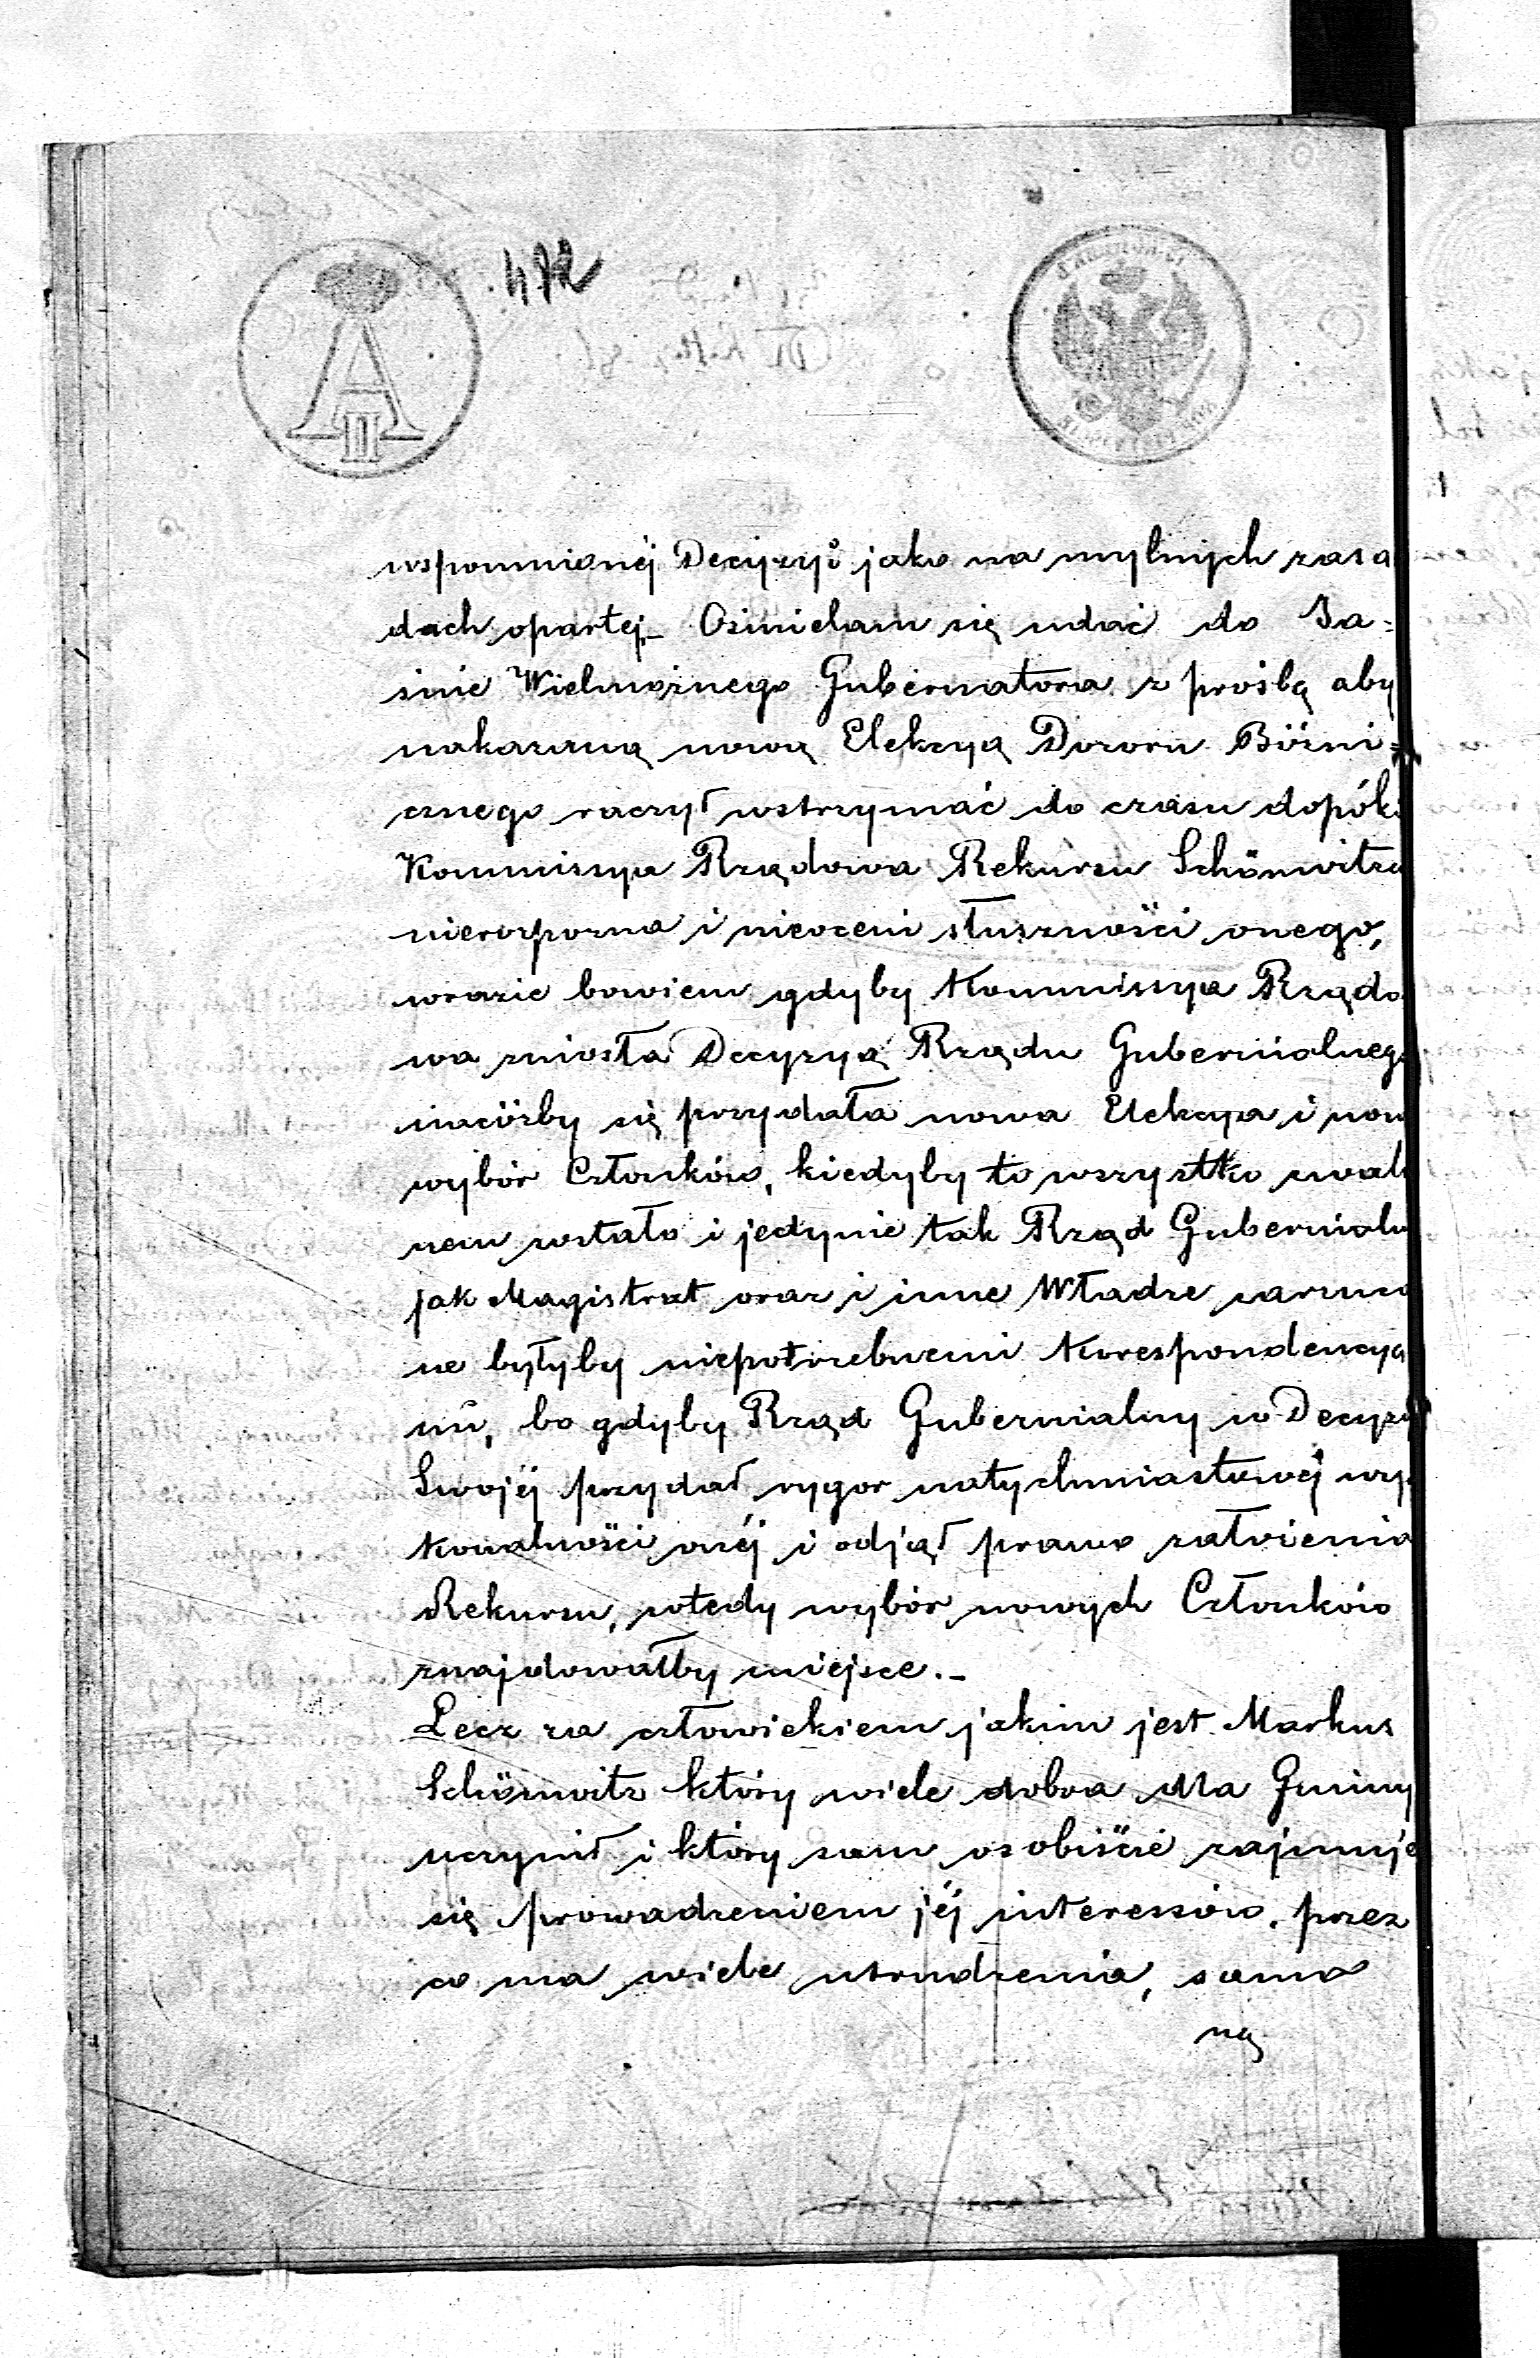 472
A II
wspomnionéj Decyzyi jako na mylnych zasa
dach opartéj_ Ośmielam się udać do Ja=
śnie Wielmożnego Gubernatora z prośbą aby
nakazaną nową Elekcyą Dozoru Bóżni=
cznego raczył wstrzymać do czasu dopóki
Kommissya Rządowa Rekursu Schönwitza
nierozpozna i nieoceni słuszności onego,
wrazie bowiem gdyby Kommissya Rządo
wa zniosła Decyzyą Rządu Gubernialnego
nacóżby się przydała nowa Elekcya i now
wybór Członków, kiedyby to wszystko
nem zostało i jedynie tak Rząd Gubernialn
jak Magistrat oraz i inne Władze
ne byłyby niepotrzebnemi Korespondencya
mi, bo gdyby Rząd Gubernialny w Decyzyi
Swojéj przydał rygor natychmiastowéj wy
konalności onéj i odjął prawo
Rekursu, wtedy wybór nowych Członków
znajdowałby miejsce._
Lecz za człowiekiem jakim jest Markus
Schönwitz który wiele dobra dla Gminy
uczynił i który sam osobiście zajmuje
się prowadzeniem jéj interessów, przez
co ma wiele utrudzenia, sama
ną